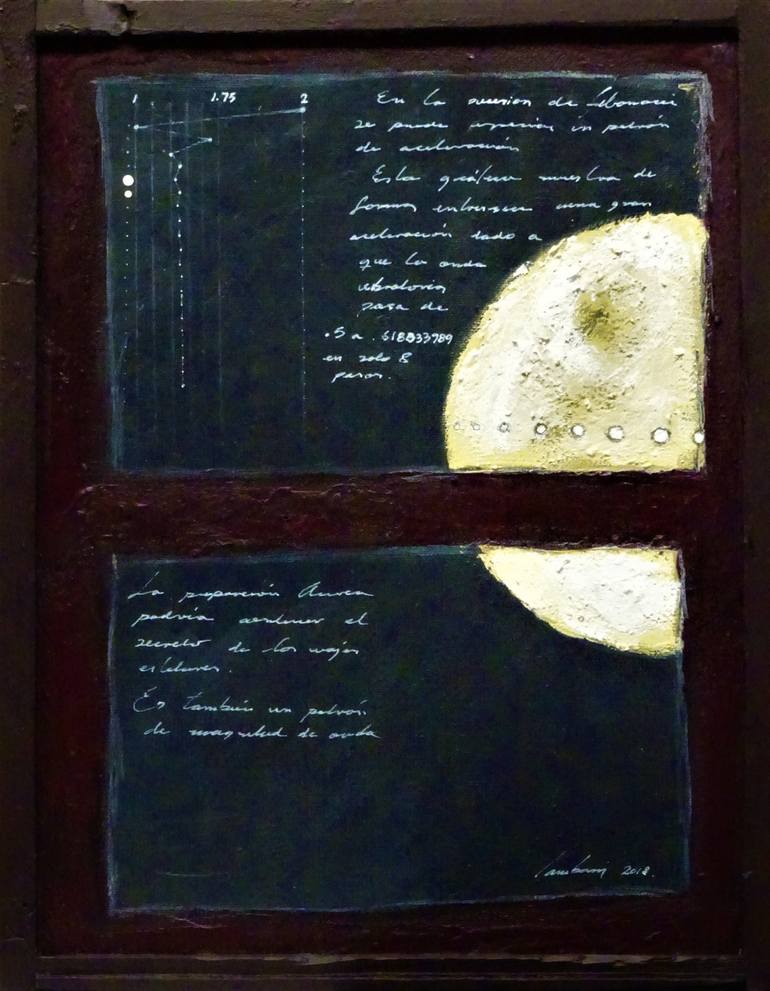 1 1.75 2
En la sucesion de Fibonacci
se puede apreciar un patrón
de aceleración
Esta gráfica muestra de
forma una gran
aceleración dado a
que la onda
vibratoria
pasa de
.5 a .618033789
en solo 8
pasos.
La proporción Aurea
podría contener el
secreto de los viajes
estelares.
Es también un patrón
de magnitud de onda
2018